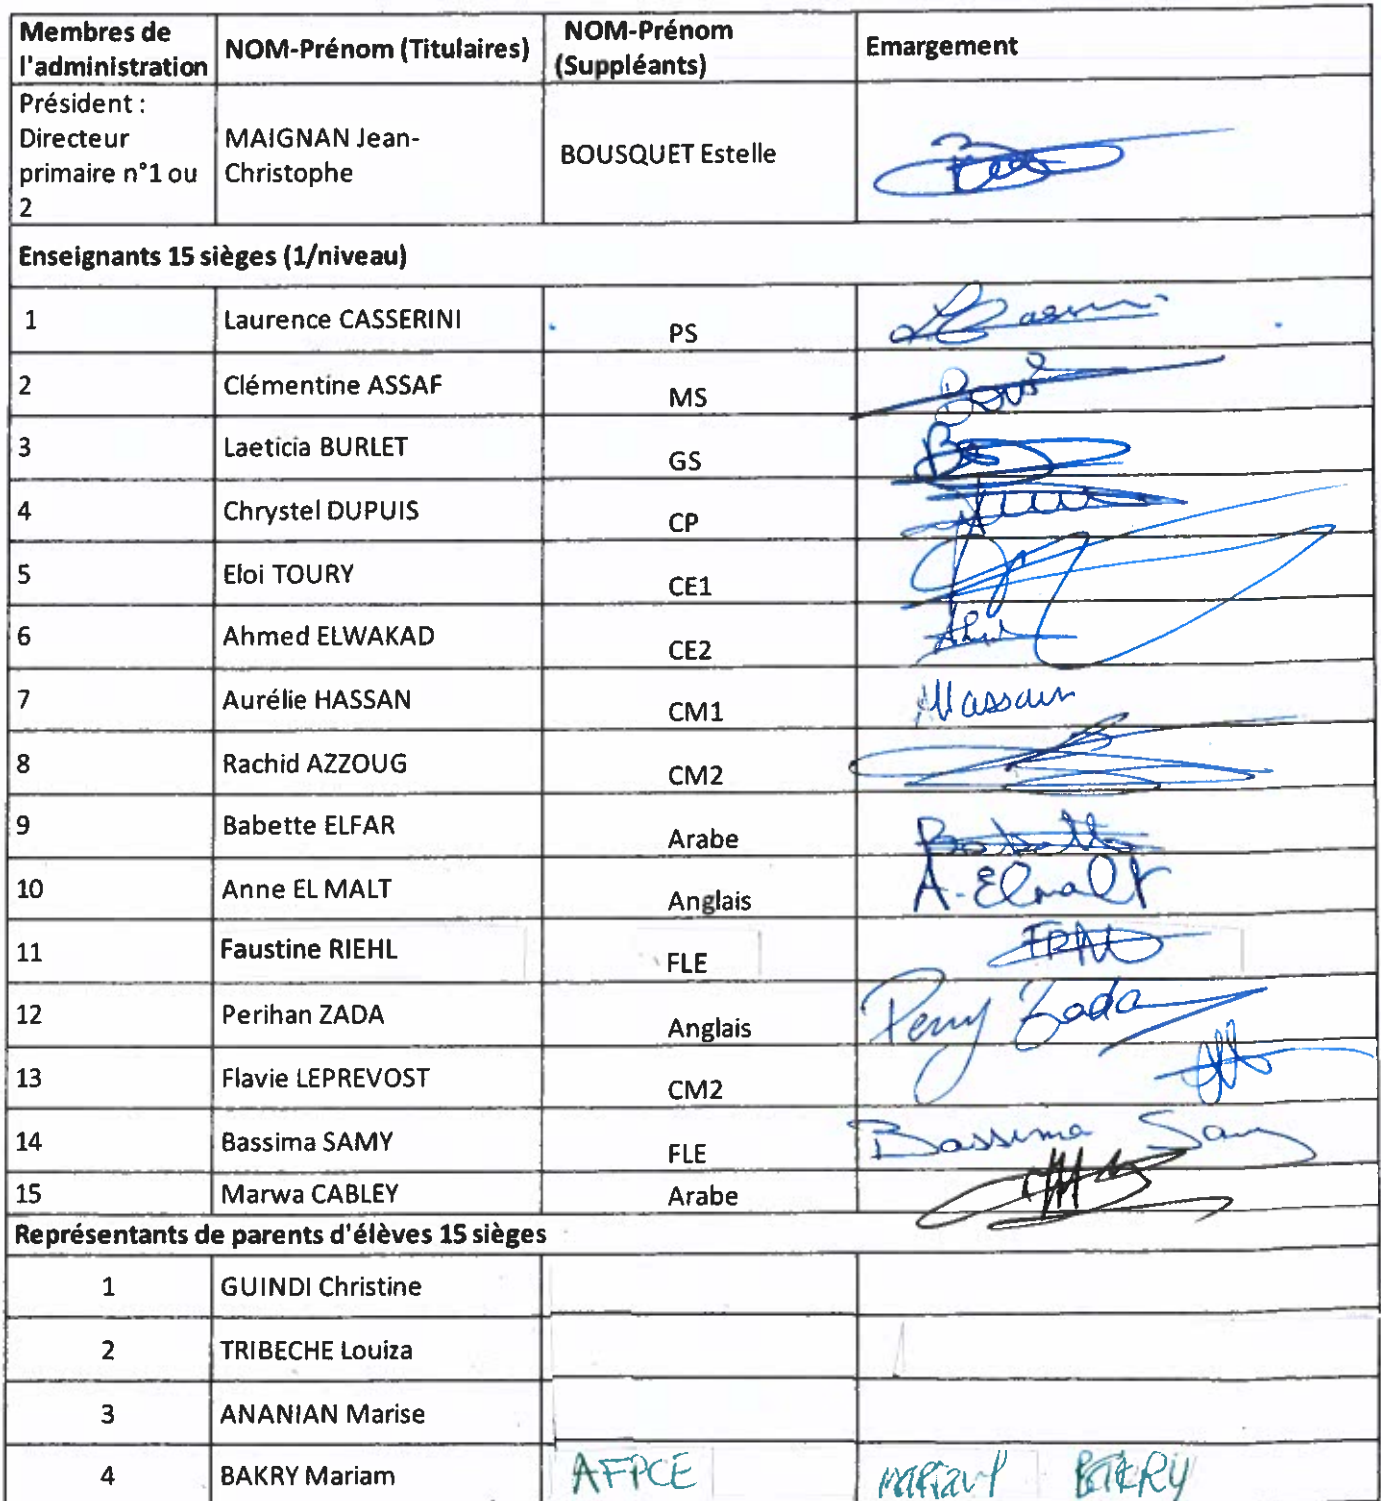 Membres de l'administration NOM-Prénom (Titulaires) NOM-Prénom (Suppléants) Emargement
Président : Directeur primaire n°1 ou 2 MAIGNAN Jean-Christophe BOUSQUET Estelle
Enseignants 15 sièges (1/niveau)
1 Laurence CASSERINI PS
2 Clémentine ASSAF MS
3 Laeticia BURLET GS
4 Chrystel DUPUIS CP
5 Eloi TOURY CE1
6 Ahmed ELWAKAD CE2
7 Aurélie HASSAN CM1 AHassan
8 Rachid AZZOUG CM2
9 Babette ELFAR Arabe Babette
10 Anne EL MALT Anglais A-Elmalt
11 Faustine RIEHL FLE
12 Perihan ZADA Anglais Pery Zada
13 Flavie LEPREVOST CM2
14 Bassima SAMY FLE Bassima Samy
15 Marwa CABLEY Arabe
Représentants de parents d'élèves 15 sièges
1 GUINDI Christine
2 TRIBECHE Louiza
3 ANANIAN Marise
4 BAKRY Mariam AFPCE Mariam BAKRY